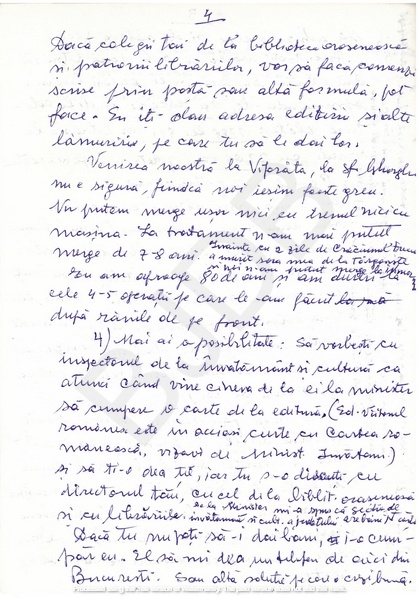 4
Dacă colegii tăi de la biblioteca orasenească
și patronii librăriilor, vor să facă comenzi
scrise prin posta sau altă formulă, pot
face. Eu iti dau adresa editurii si alte
lămuriri, pe care tu să le dai lor.
Venirea noastră la Viforâta, la Sf. Gheorghe
nu e sigură, fiindcă noi iesim foarte greu.
Nu putem merge usor nici cu trenul nici cu
masina. La tratament n-am mai putut
merge de 7-8 ani. Înainte cu 2 zile de Crăciunul
a murit sora mea de la Târgoviste
si noi n-am putut merge la
Eu am aproape 80 de ani si am dureri la
cele 4-5 operatii pe care le-am făcut
după rănile de pe front.
4) Mai ai o posibilitate: Să vorbești cu
inspectorul de la învătământ si cultură ca
atunci când vine cineva de la ei la minister
să cumpere o carte de la editură, (Ed. Viitorul
românesc este în aceiasi curte cu Cartea ro-
manească, vizavi de Minist. Învătăm.)
si să ti-o dea tie, iar tu s-o discuti cu
directorul tău, cu cel de la bibliot. orasenească
si cu librăriile.
de la Minister mi-a spus că sectia de
învătământ si cult. a judetului
Dacă tu nu poti să-i dai bani, i-o cum-
păr eu. El să-mi dea un telefon de aici din
Bucuresti. Sau altă solutie pe care o crezi bună.